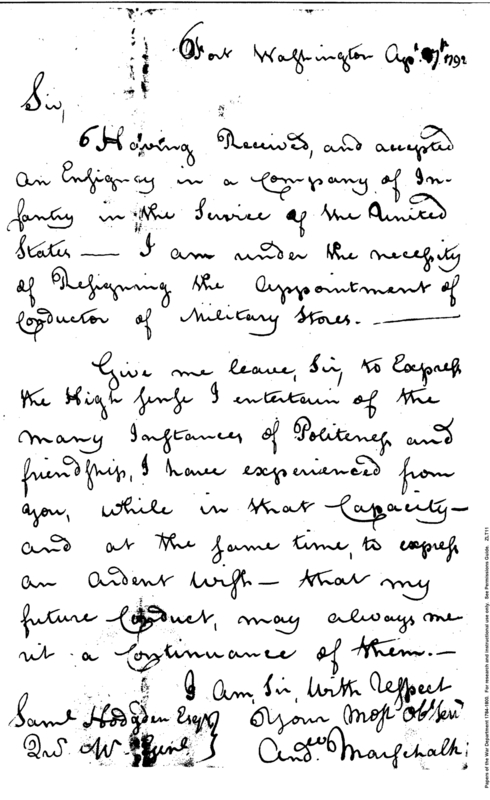 Fort Washington Apr. 17th 1792
Sir,
Having Received, and accepted
an Ensigncy in a Company of In-
fantry in the Service of the United
States — I am under the necessity
of Resigning the Appointment of
Conductor of Military Stores. —
Give me leave, Sir, to Express
the High sense I entertain of the
many Instances of Politeness and
friendship, I have experienced from
you, while in that Capacity —
and at the same time, to express
an ardent wish — that my
future Conduct, may always me
rit a Continuance of them. —
I Am, Sir, With Respect
Your Most Obt Servt
Andw. Marschalk
Saml Hodgden Esqr
Qr Mr Genl
Papers of the War Department 1784-1800. For research and instructional use only. See Permissions Guide. ZLT11